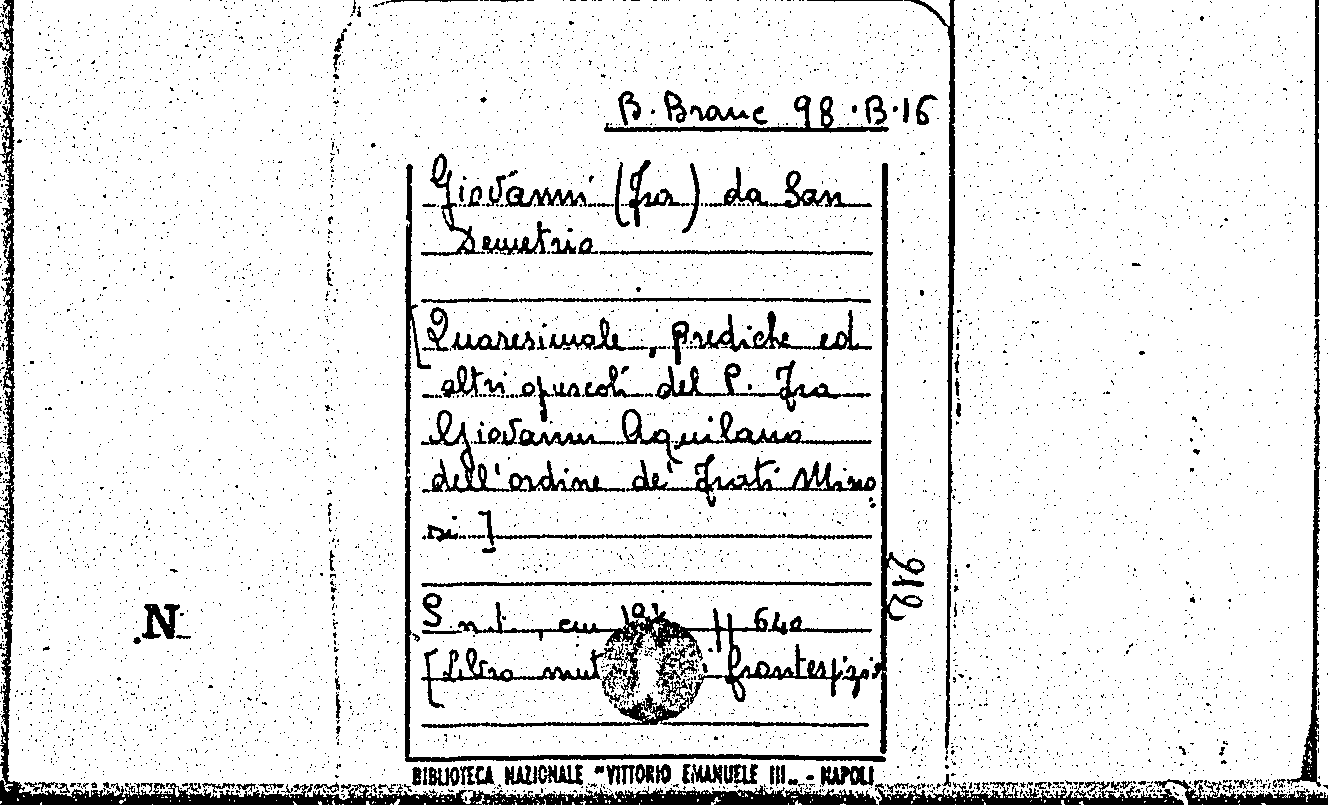 B. Branc 98.B.16
Giovanni (Fra) da San
Demetrio
[Quaresimale, prediche ed
altri opuscoli del P. Fra
Giovanni Aquilano
dell'ordine de' Frati Mino-
ri]
S. n. t., cm pp 640
[Libro frontespizio
N
BIBLIOTECA NAZIONALE "VITTORIO EMANUELE III„ - NAPOLI